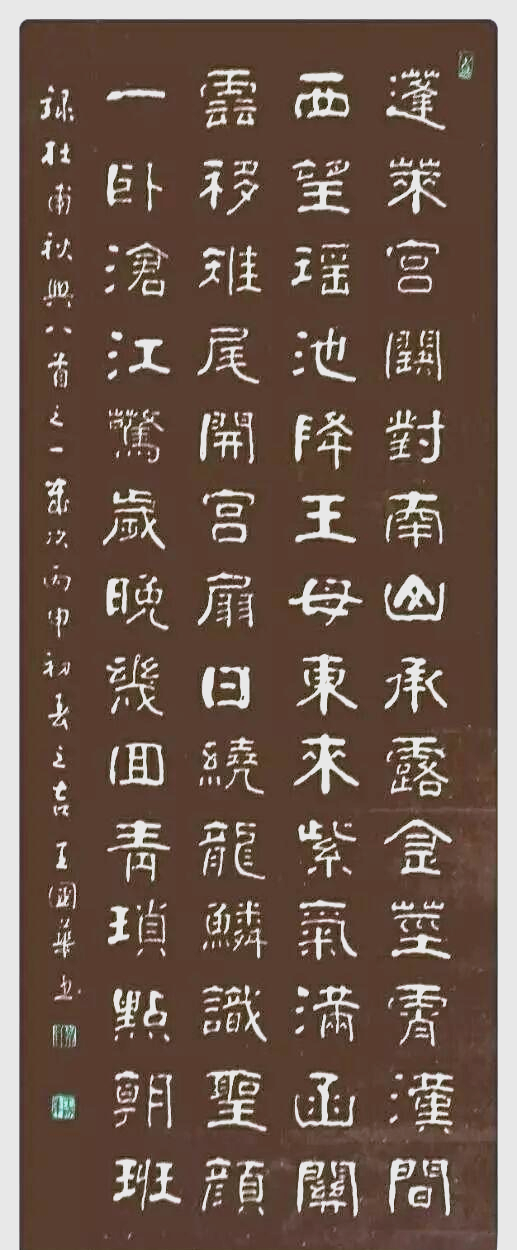 蓬萊宮闕對南山承露金莖霄漢間
西望瑶池降王母東來紫氣滿函關
雲移雉尾開宮扇日繞龍鱗識聖顏
一卧滄江驚歲晚幾回青瑣點朝班
録杜甫秋興八首之一歲次丙申初春之吉王國華书